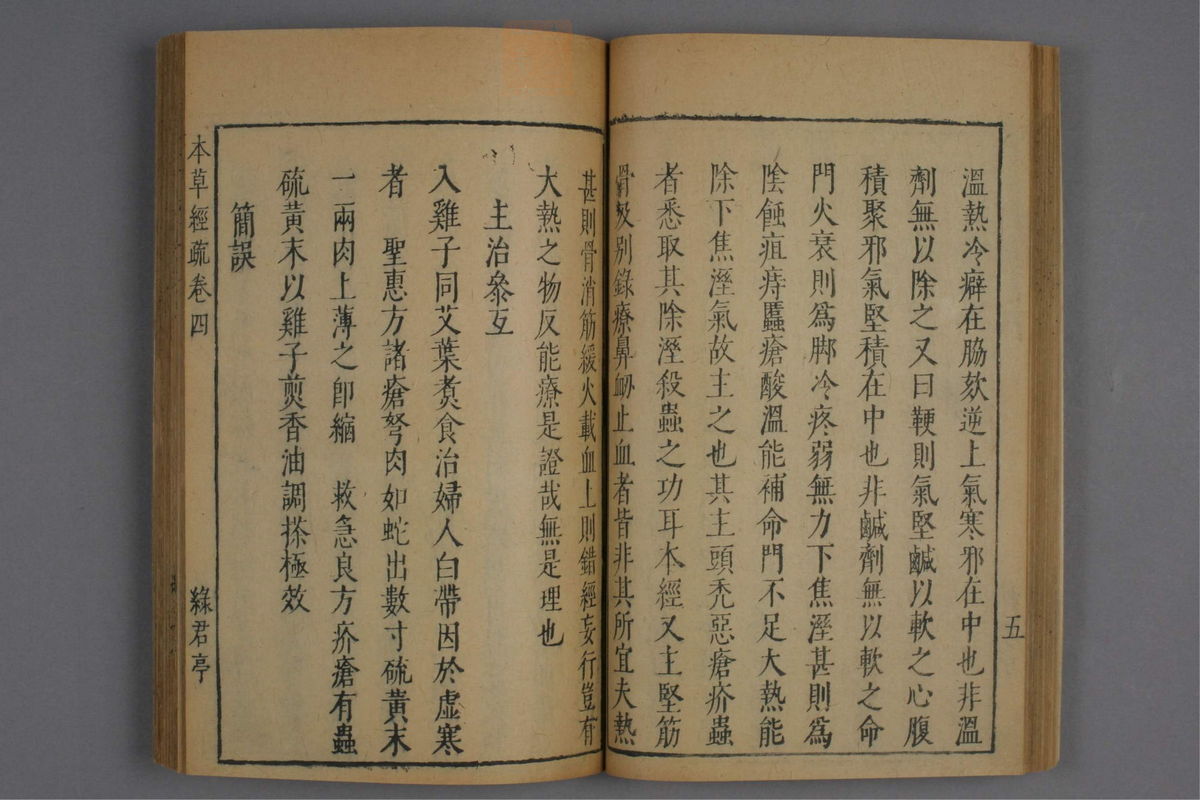 五
溫熱冷癖在脇欬逆上氣寒邪在中也非溫
劑無以除之又曰鞕則氣堅鹹以軟之心腹
積聚邪氣堅積在中也非鹹劑無以軟之命
門火衰則爲脚冷疼弱無力下焦溼甚則爲
陰蝕疽痔䘌瘡酸溫能補命門不足大熱能
除下焦溼氣故主之也其主頭禿惡瘡疥蟲
者悉取其除溼殺蟲之功耳本經又主堅筋
骨及别錄療鼻衂止血者皆非其所宜夫熱
甚則骨消筋緩火載血上則錯經妄行豈有
大熱之物反能療是證哉無是理也
主治參互
入雞子同艾葉煑食治婦人白帶因於虛寒
者 聖惠方諸瘡弩肉如蛇出數寸硫黃末
一二兩肉上薄之卽縮 救急良方疥瘡有蟲
硫黃末以雞子煎香油調搽極效
簡誤
本草經疏卷四 綠君亭